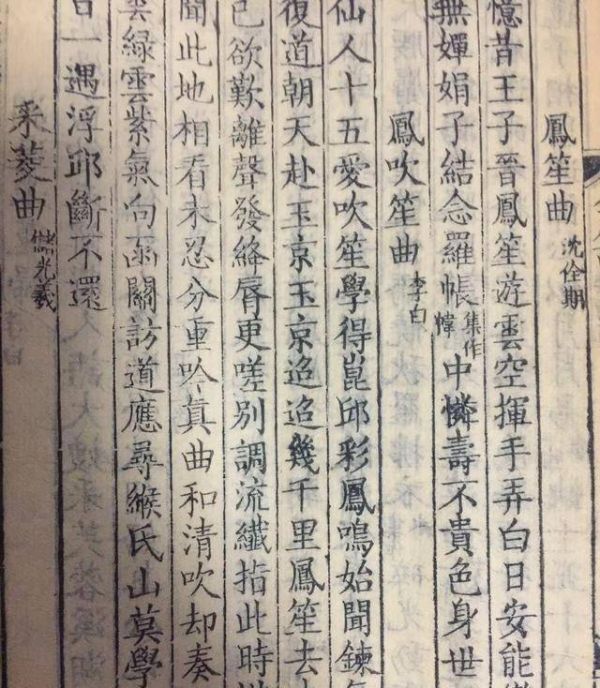 鳳笙曲 沈佺期
憶昔王子晉鳳笙遊雲空揮手弄白日安能
無嬋娟子結念羅帳集作幃中憐壽不貴色身世
鳳吹笙曲 李白
仙人十五愛吹笙學得崑邱彩鳳鳴始聞鍊
復道朝天赴玉京玉京迢迢幾千里鳳笙去
已欲歎離聲發絳脣更嗟別調流纖指此時
聞此地相看未忍分重吟真曲和清吹却奏
雲綠雲紫氣向函關訪道應尋緱氏山莫學
一遇浮邱斷不還
采菱曲 儲光羲